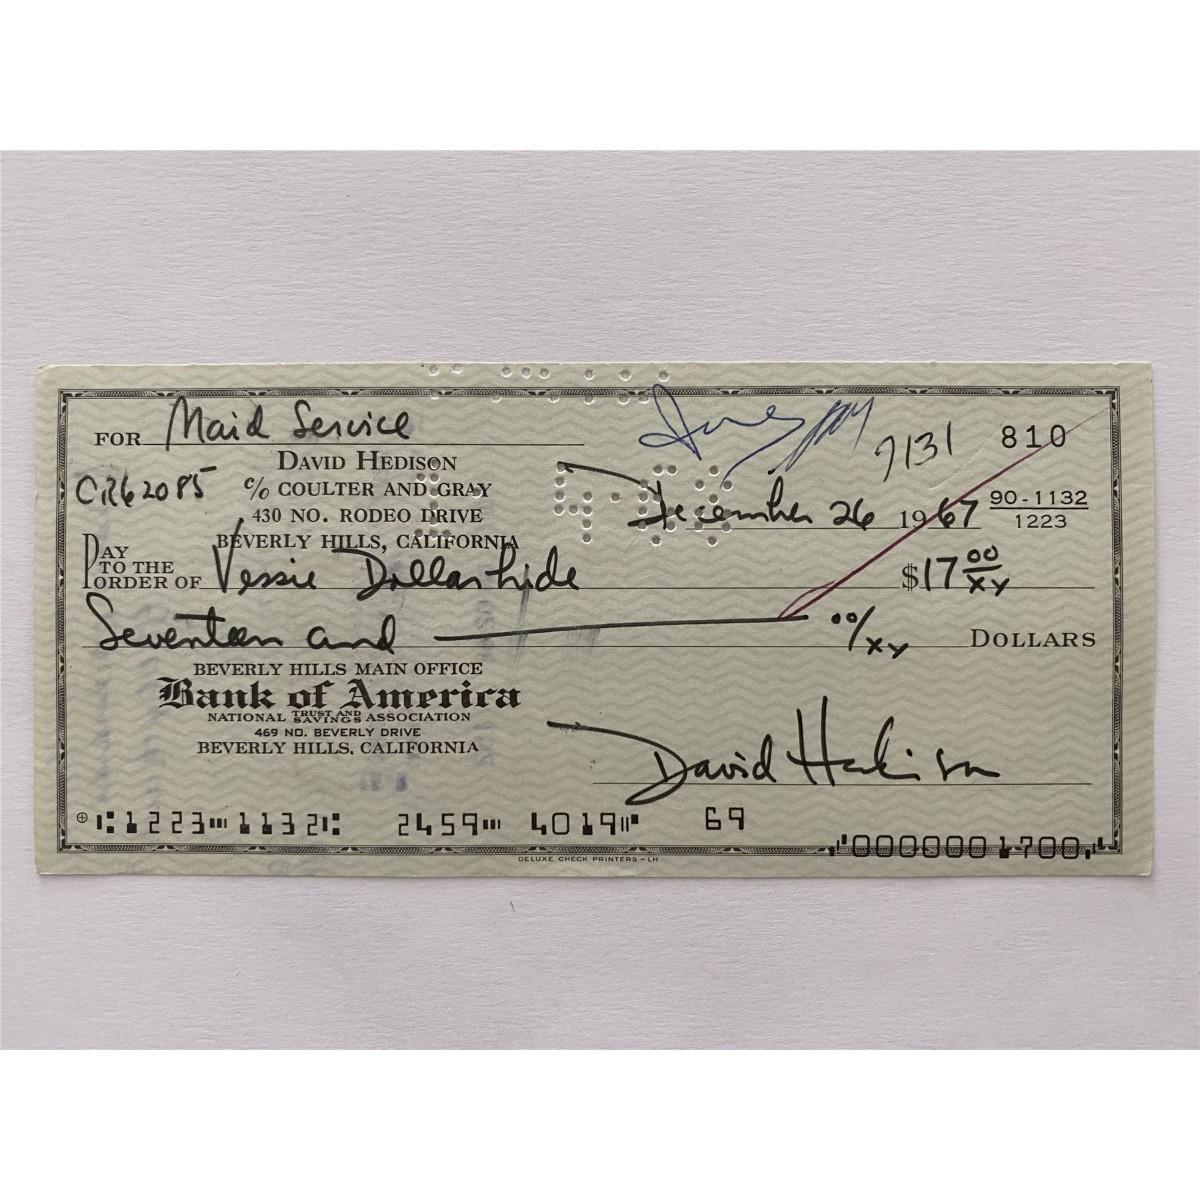 FOR Maid Service
7131 810
DAVID HEDISON
CR62085 c/o COULTER AND GRAY
430 NO. RODEO DRIVE
December 26 1967 90-1132
1223
BEVERLY HILLS, CALIFORNIA
PAY TO THE ORDER OF Vessie Dollarhide $17 00/xy
Seventeen and 00/xy DOLLARS
BEVERLY HILLS MAIN OFFICE
Bank of America
NATIONAL TRUST AND SAVINGS ASSOCIATION
469 NO. BEVERLY DRIVE
BEVERLY HILLS, CALIFORNIA
David Hedison
⑆1223⑉1132⑆ 2459⑉ 4019⑈ 69
⑈0000001700⑈
DELUXE CHECK PRINTERS - LH